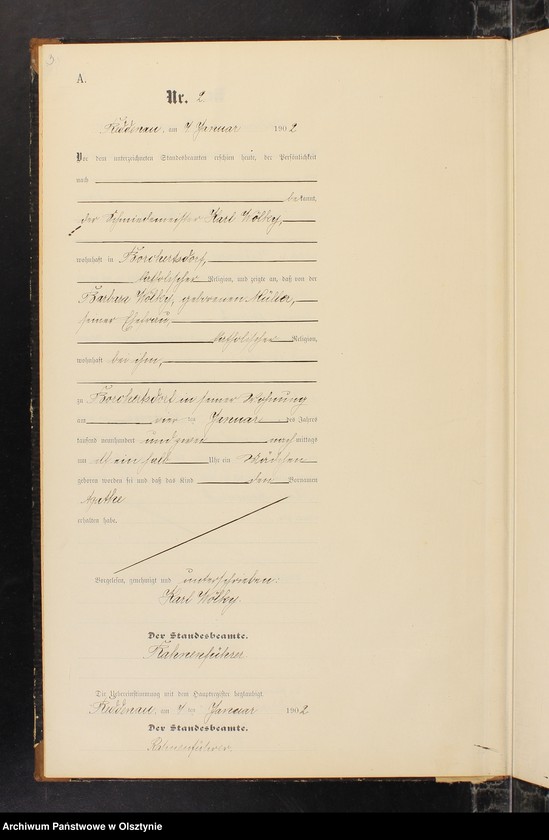 A.
Nr. 2
am 4 Januar 1902
Vor dem unterzeichneten Standesbeamten erschien heute, der Persönlichkeit
nach
bekannt,
der Schmiedemeister Karl Wölky,
wohnhaft in Borchertsdorf,
katholischer Religion, und zeigte an, daß von der
Barbara Wölky, geborenen Müller,
seiner Ehefrau,
katholischer Religion,
wohnhaft bei ihm,
zu Borchertsdorf in seiner Wohnung
am Januar des Jahres
tausend neunhundert und zwei nachmittags
um ein halb Uhr ein Mädchen
geboren worden sei und daß das Kind den Vornamen
Agathe
erhalten habe.
Vorgelesen, genehmigt und unterschrieben:
Karl Wölky.
Der Standesbeamte.
Die Uebereinstimmung mit dem Hauptregister beglaubigt.
am 4 Januar 1902
Der Standesbeamte.
Archiwum Państwowe w Olsztynie